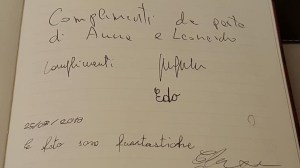 Complimenti da parte
di Anna e Leonardo
complimenti
Edo
25/08/2018
Le foto sono fantastiche